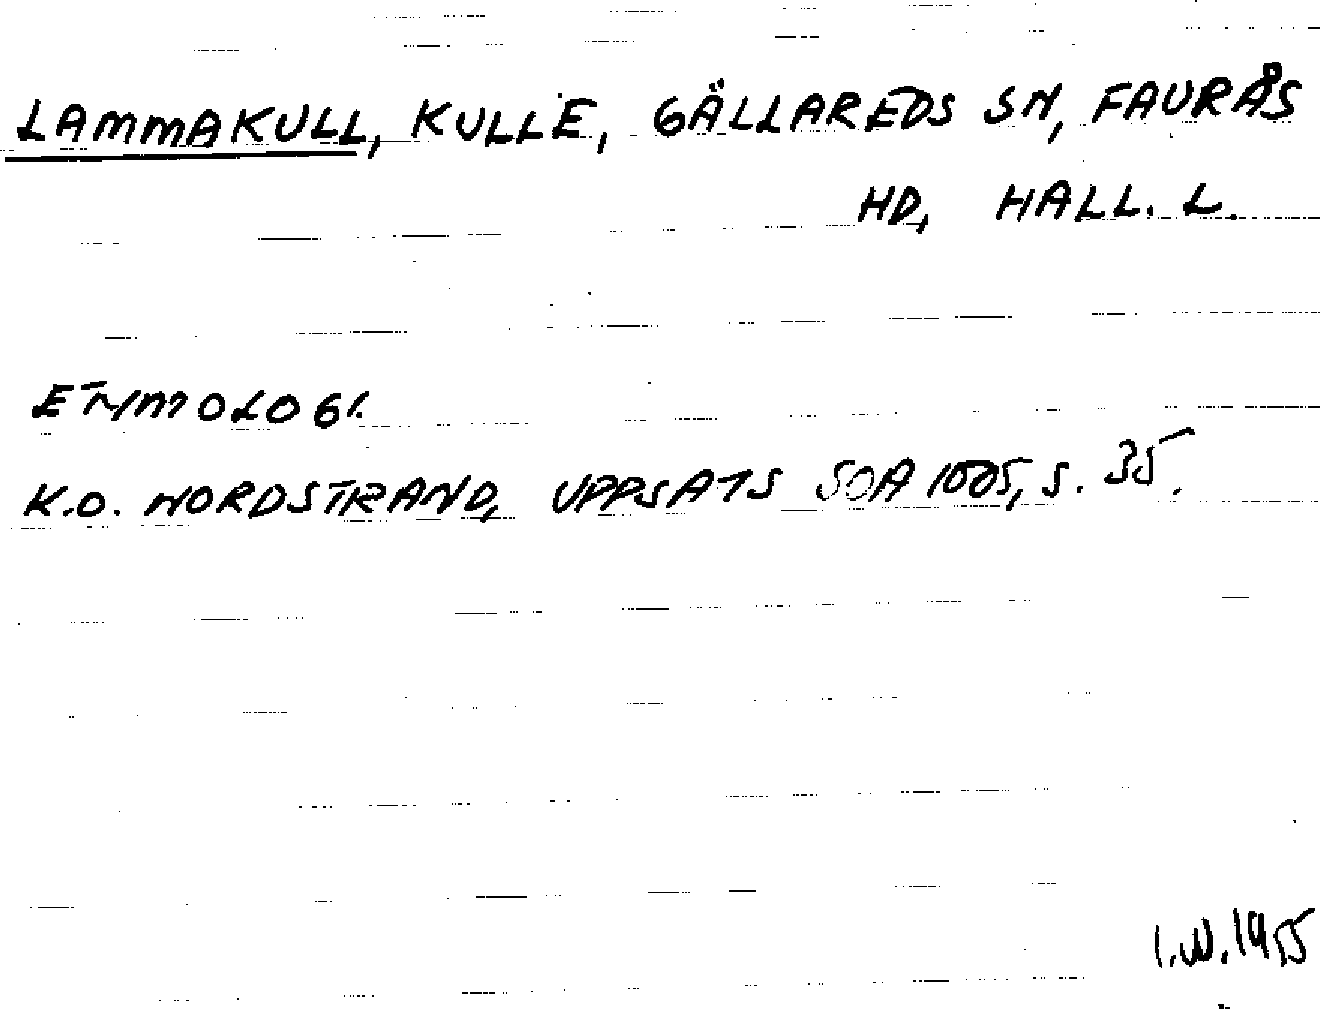 LAMMAKULL, KULLE, GÄLLAREDS SN, FAURÅS
HD, HALL. L.
ETYMOLOGI.
K.O. NORDSTRAND, UPPSATS SOA 1005, S. 35.
I.W. 1955